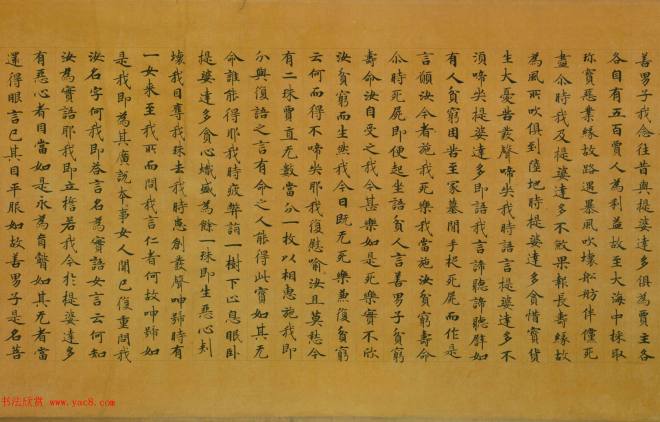 善男子我念往昔與提婆達多俱為賈主各
各自有五百賈人為利益故至大海中採取
珎寶惡業緣故路遇暴風吹壞舩舫伴儻死
盡尒時我及提婆達多不敗果報長壽緣故
為風所吹俱到陸地時提婆達多貪惜寶貨
生大憂苦發聲啼哭我時語言提婆達多不
湏啼哭提婆達多即語我言諦聽諦聽辟如
有人貧窮困苦至冢墓間手捉死屍而作是
言願汝今者施我死樂我當施汝貧窮壽命
尒時死屍即便起坐語貧人言善男子貧窮
壽命汝自受之我今甚樂如是死樂實不欣
汝貧窮而生然我今日既无死樂兼復貧窮
云何而得不啼哭耶我復慰喻汝且莫愁今
有二珠賈直无數當分一枚以相惠施我即
分與復語之言有命之人能得此寶如其无
命誰能得耶我時疲弊詣一樹下止息眠卧
提婆達多貪心熾盛為餘一珠即生惡心刾
壞我目奪我珠去我時患創發聲呻㖒時有
一女来至我所而問我言仁者何故呻㖒如
是我即為其廣說本事女人聞已復重問我
汝名字何我即荅言名為實語女言云何知
汝為實語耶我即立誓若我今於提婆達多
有惡心者目當如是永為盲瞽如其无者當
還得眼言已其目平服如故善男子是名菩
书法欣赏 www.yac8.com